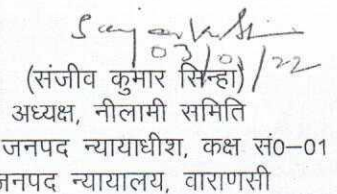 03/01/22
(संजीव कुमार सिन्हा)
अध्यक्ष, नीलामी समिति
जनपद न्यायाधीश, कक्ष सं0–01
जनपद न्यायालय, वाराणसी